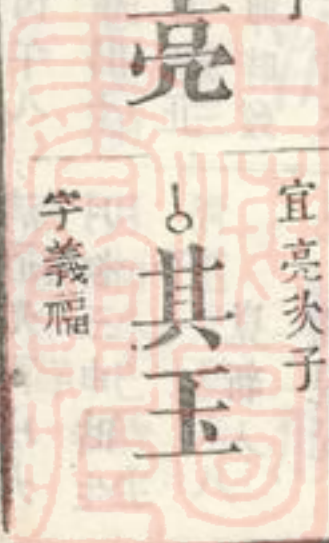 亮
宜亮次子
其玉
字義福